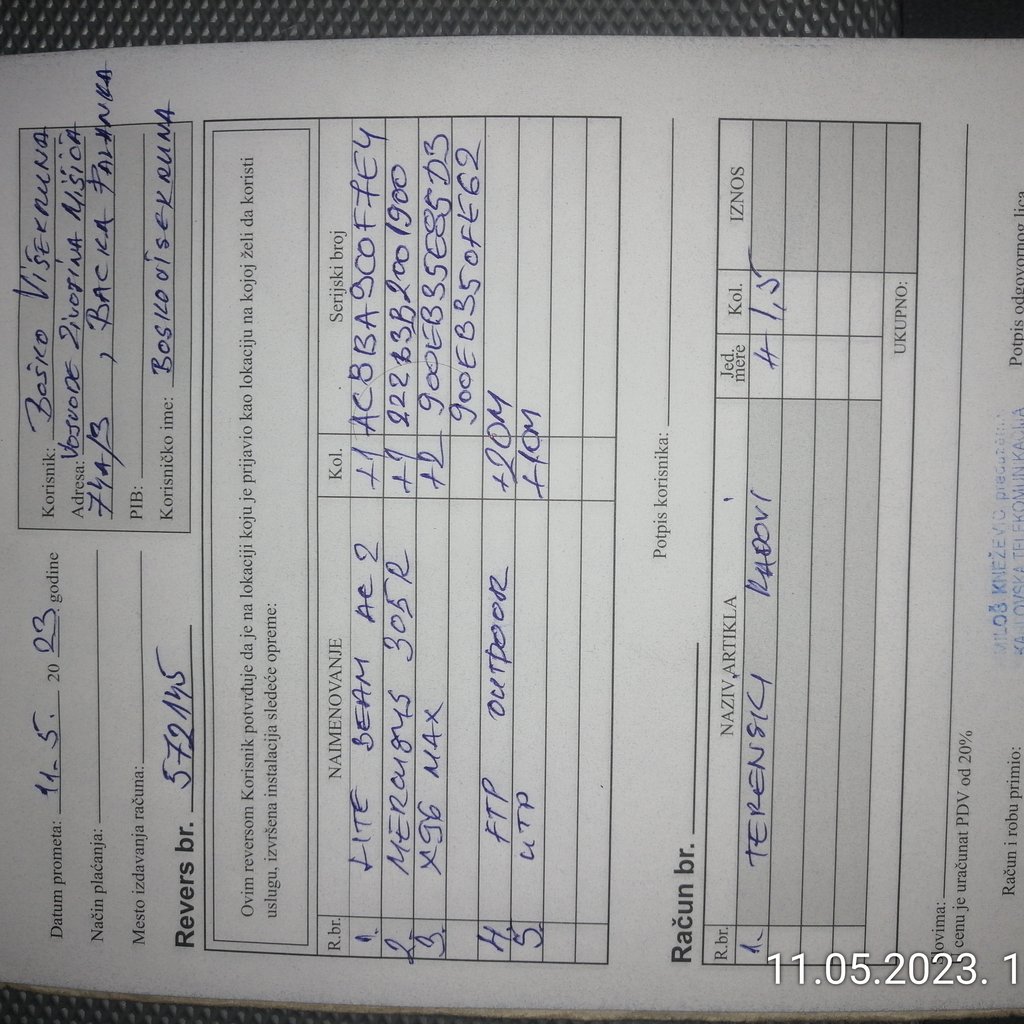 Datum prometa: 11.5. 2023. godine
Način plaćanja:
Mesto izdavanja računa:
Revers br. 572145
Korisnik: BOŠKO VIŠEKRUNA
Adresa: VOJVODE ŽIVOJINA MIŠIĆA
74A/3, BAČKA PALANKA
PIB:
Korisničko ime: BOSKOVISEKRUNA
Ovim reversom Korisnik potvrđuje da je na lokaciji koju je prijavio kao lokaciju na kojoj želi da koristi
uslugu, izvršena instalacija sledeće opreme:
R.br. NAIMENOVANJE Kol. Serijski broj
1. LITE BEAM AC 2 +1 AC8BA9C0F7E4
2. MERCUSYS 305R +1 222B3B2001900
3. X96 MAX +2 900EB35E85D3
900EB350FE62
4. FTP OUTDOOR +20M
5. UTP +10M
Potpis korisnika:
Račun br.
R.br. NAZIV ARTIKLA Jed. mere Kol. IZNOS
1. TERENSKI RADOVI H 1,5
UKUPNO:
Slovima:
U cenu je uračunat PDV od 20%
Račun i robu primio:
MILOŠ KNEŽEVIĆ
Potpis odgovornog lica
11.05.2023. 1